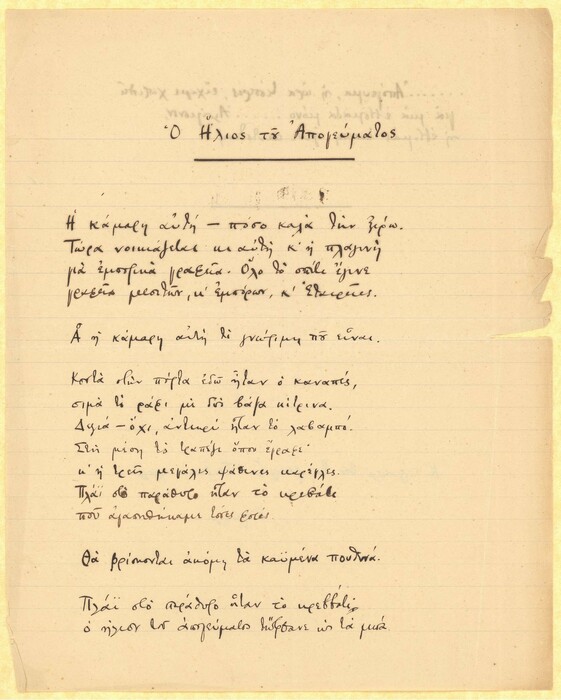 Ὁ Ἥλιος τοῦ Ἀπογεύματος
Ἡ κάμαρη αὐτή — πόσο καλὰ τὴν ξέρω.
Τώρα νοικιάζεται κι αὐτὴ κ' ἡ πλαγινὴ
γιὰ ἐμπορικὰ γραφεῖα. Ὅλο τὸ σπίτι ἔγινε
γραφεῖα μεσιτῶν, κ' ἐμπόρων, κ' Ἑταιρεῖες.
Ἆ ἡ κάμαρη αὐτὴ τί γνώριμη ποῦ εἶναι.
Κοντὰ στὴν πόρτα ἐδῶ ἦταν ὁ καναπές,
σιμὰ τὸ ράφι μὲ δυὸ βάζα κίτρινα.
Δεξιά — ὄχι, ἀντικρὺ ἦταν τὸ λαβαμπό.
Στὴ μέση τὸ τραπέζι ὅπου ἔγραφε·
κ' ἡ τρεῖς μεγάλες ψάθινες καρέγλες.
Πλάϊ στὸ παράθυρο ἦταν τὸ κρεβάτι
ποῦ ἀγαπηθήκαμε τόσες φορές.
Θὰ βρίσκονται ἀκόμη τὰ καϋμένα πουθενά.
Πλάϊ στὸ παράθυρο ἦταν τὸ κρεββάτι,
ὁ ἥλιος τοῦ ἀπογεύματος τὤφθανε ὡς τὰ μισά.